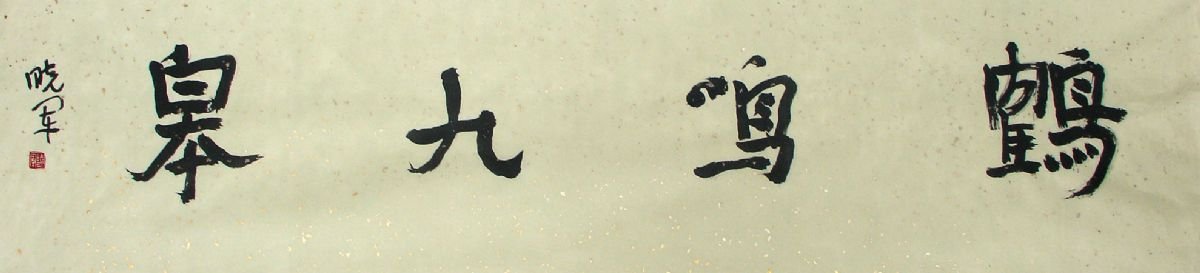 鶴鸣九皋
晓军